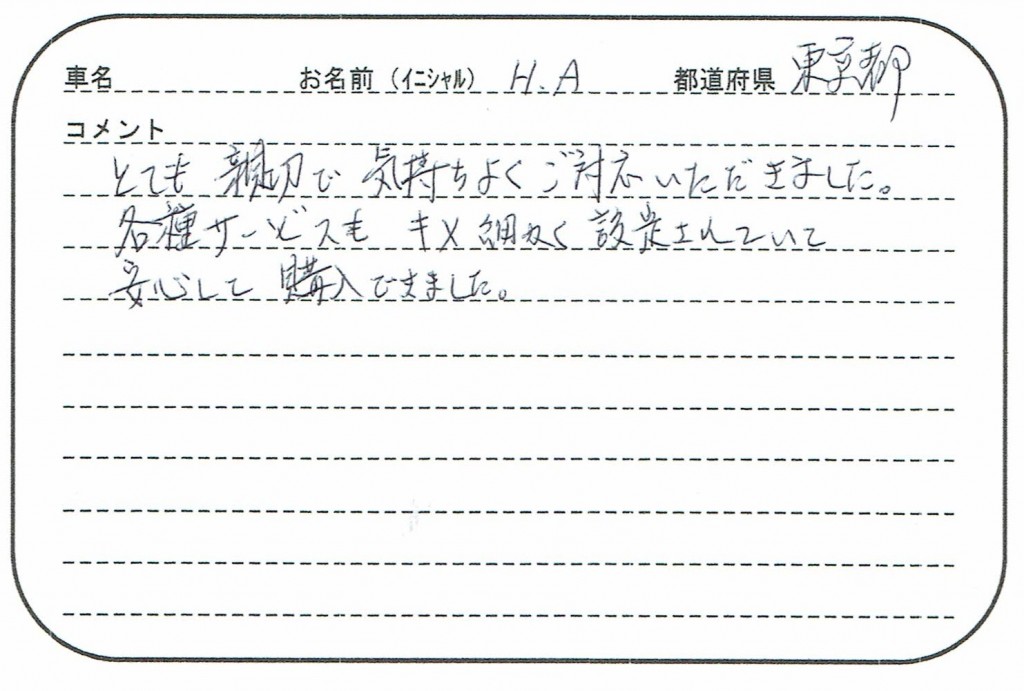 車名 お名前（ｲﾆｼｬﾙ） H.A 都道府県 東京都
コメント
とても 親切で 気持ちよくご対応いただきました。
各種サービスも キメ細かく 設定されていて
安心して 購入できました。